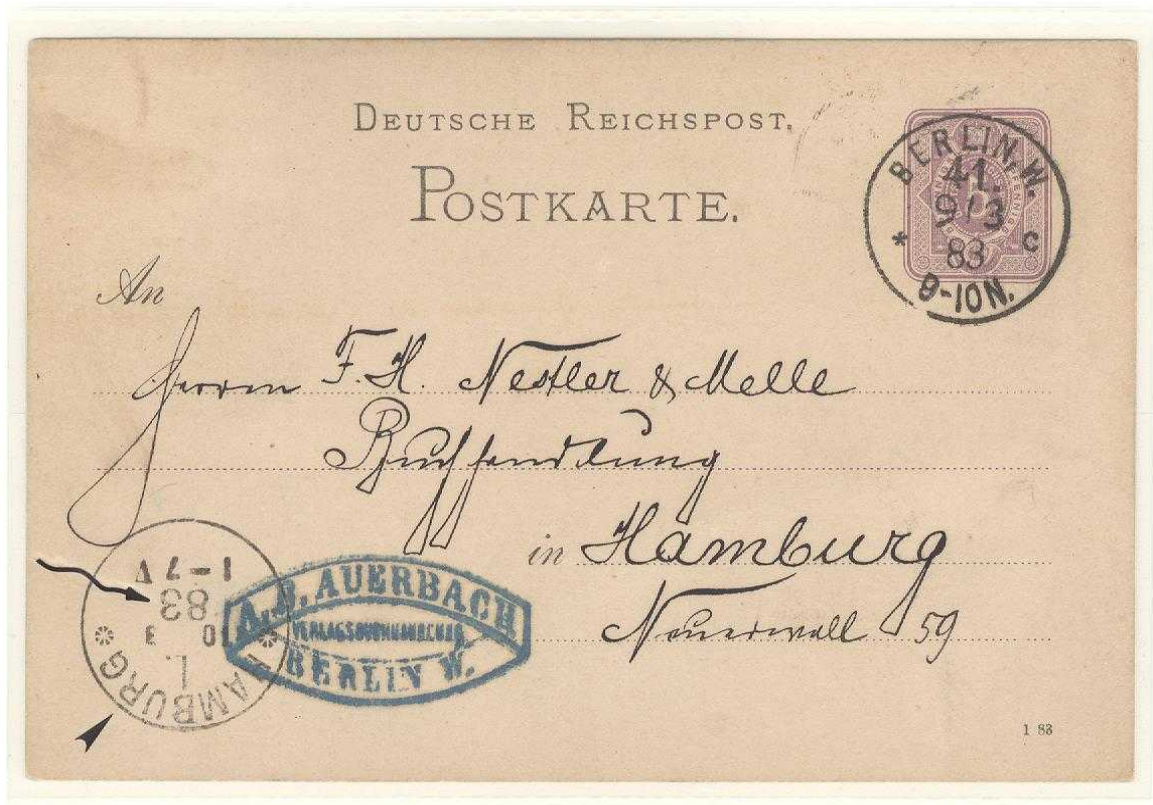 DEUTSCHE REICHSPOST.
POSTKARTE.
BERLIN, W.
41.
9/3
83
* c
9-10N.
An
Herrn F. H. Nestler & Melle
Buchhandlung
in Hamburg
Neuerwall 59
HAMBURG
1.
83
1-7 V
A. B. AUERBACH
VERLAGSBUCHHANDLUNG
BERLIN W.
1 83